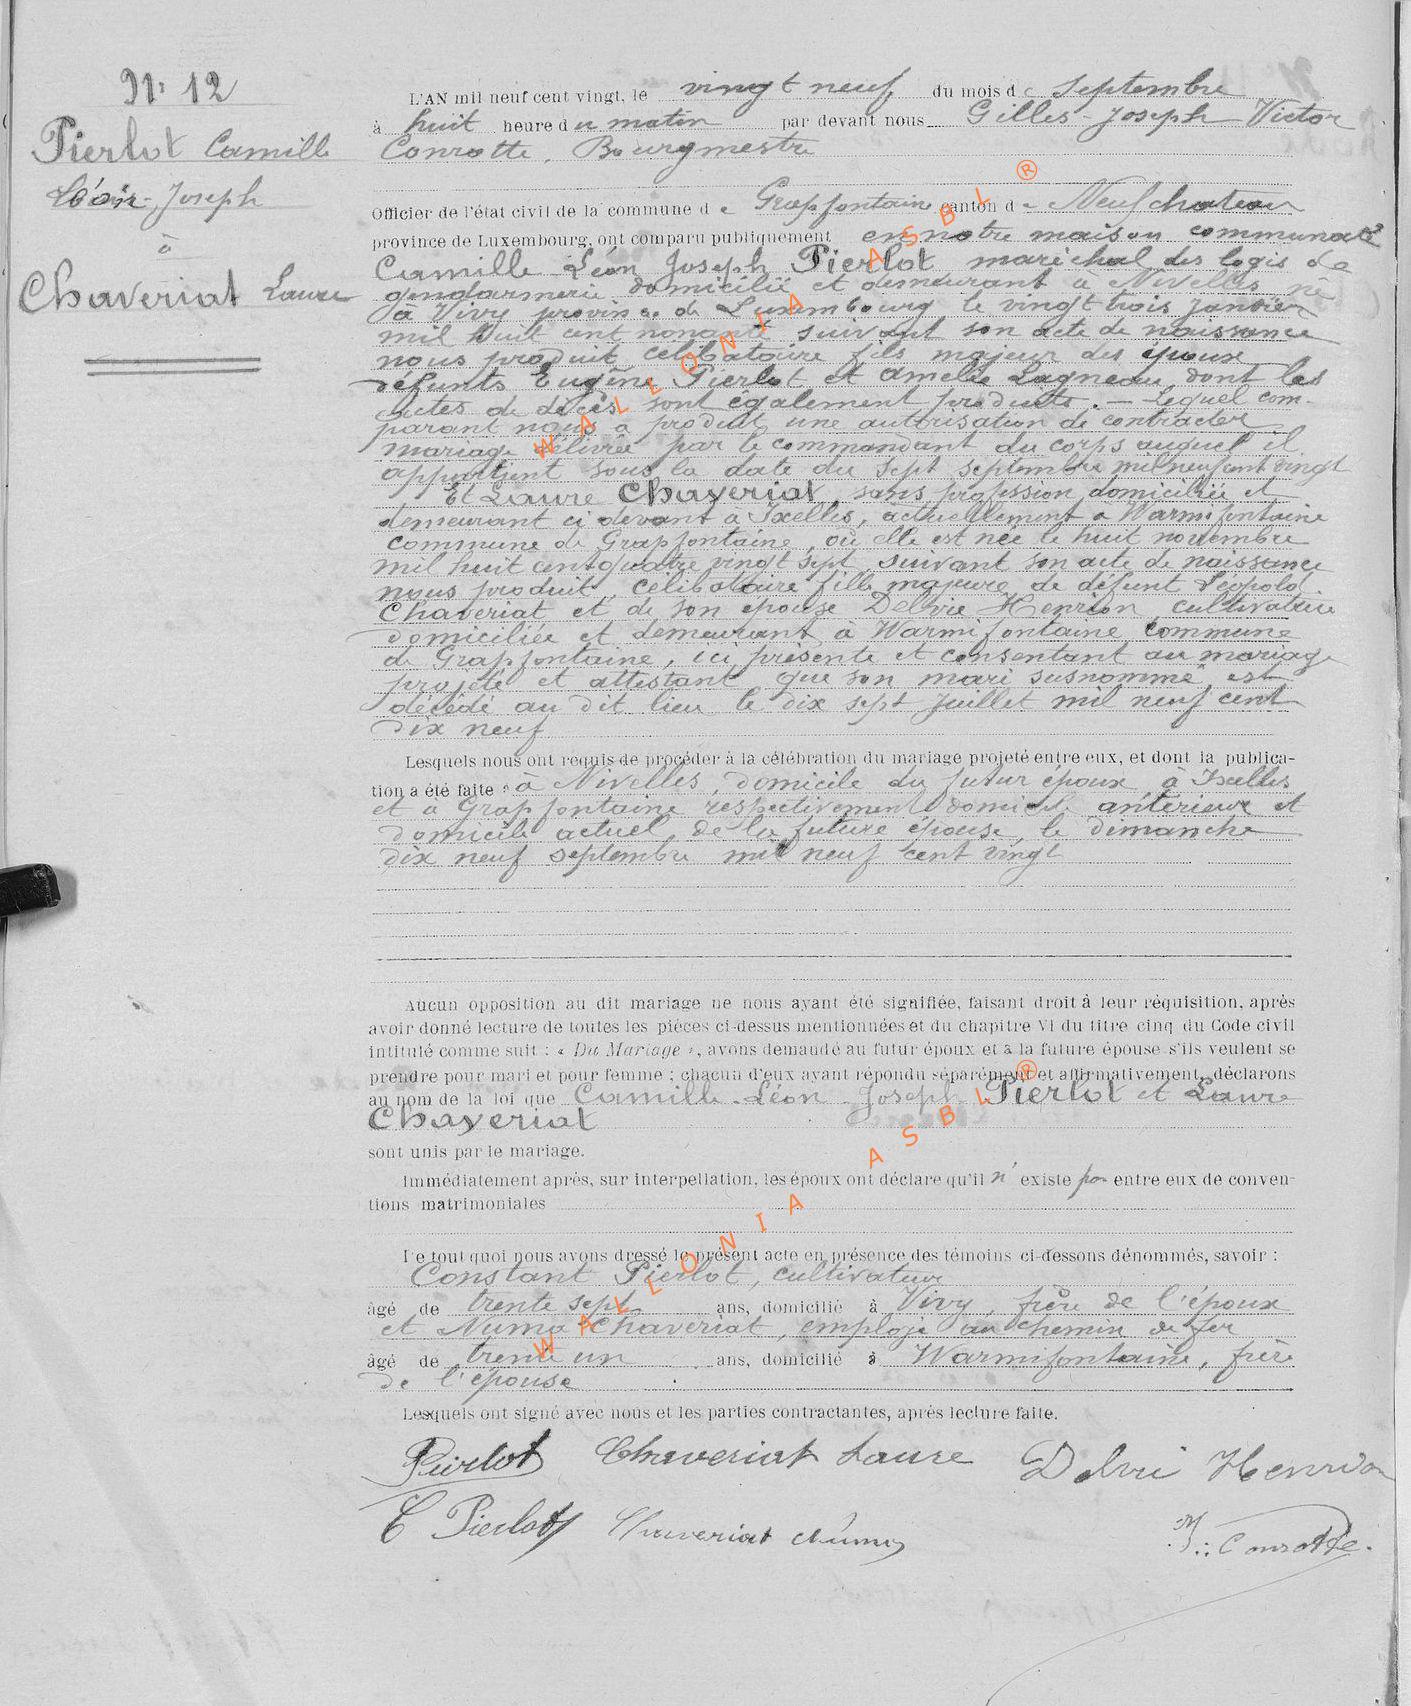 N° 12
Pierlot Camille
Léon-Joseph
à
Chaveriat Laure
L'AN mil neuf cent vingt, le vingt neuf du mois de Septembre
à huit heure du matin par devant nous Gilles-Joseph Victor
Conrotte, Bourgmestre
Officier de l'état civil de la commune de Grapfontaine canton de Neufchateau
province de Luxembourg, ont comparu publiquement en notre maison communale
Camille Léon Joseph Pierlot maréchal des logis de
gendarmerie domicilié et demeurant à Nivelles né
à Vivy province de Luxembourg le vingt trois Janvier
mil huit cent nonante suivant son acte de naissance
nous produit célibataire fils majeur des époux
défunts Eugène Pierlot et Amélie Lagneau dont les
actes de décès sont également produits. — Lequel com-
parant nous a produit une autorisation de contracter
mariage délivrée par le commandant du corps auquel il
appartient sous la date du sept septembre mil neuf cent vingt
Et Laure Chaveriat, sans profession domiciliée et
demeurant ci devant à Ixelles, actuellement à Warmifontaine
commune de Grapfontaine, où elle est née le huit novembre
mil huit cent quatre vingt sept, suivant son acte de naissance
nous produit, célibataire fille majeure de défunt Léopold
Chaveriat et de son épouse Delvie Henrion cultivatrice
domiciliée et demeurant à Warmifontaine commune
de Grapfontaine, ici présente et consentant au mariage
projeté et attestant que son mari susnommé est
décédé au dit lieu le dix sept Juillet mil neuf cent
dix neuf
Lesquels nous ont requis de procéder à la célébration du mariage projeté entre eux, et dont la publica-
tion a été faite : à Nivelles, domicile du futur époux à Ixelles
et à Grapfontaine respectivement domicile antérieur et
domicile actuel de la future épouse, le dimanche
dix neuf septembre mil neuf cent vingt
Aucun opposition au dit mariage ne nous ayant été signifiée, faisant droit à leur réquisition, après
avoir donné lecture de toutes les pièces ci-dessus mentionnées et du chapitre VI du titre cinq du Code civil
intitulé comme suit : « Du Mariage », avons demandé au futur époux et à la future épouse s'ils veulent se
prendre pour mari et pour femme ; chacun d'eux ayant répondu séparément et affirmativement, déclarons
au nom de la loi que Camille-Léon-Joseph Pierlot et Laure
Chaveriat
sont unis par le mariage.
Immédiatement après, sur interpellation, les époux ont déclare qu'il n'existe pas entre eux de conven-
tions matrimoniales
De tout quoi nous avons dressé le présent acte en présence des témoins ci-dessons dénommés, savoir :
Constant Pierlot, cultivateur
âgé de trente sept ans, domicilié à Vivy, frère de l'époux
et Numa Chaveriat, employé au chemin de fer
âgé de trente un ans, domicilié à Warmifontaine, frère
de l'épouse
Lesquels ont signé avec nous et les parties contractantes, après lecture faite.
Pierlot Chaveriat Laure Delvie Henrion
C Pierlot Chaveriat Numa Conrotte
WALLONIA ASBL ®
WALLONIA ASBL ®